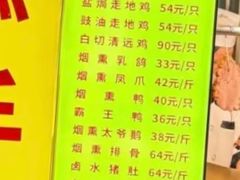 盐焗走地鸡 54元/只
豉油走地鸡 54元/只
白切清远鸡 90元/只
烟熏乳鸽 33元/只
烟熏凤爪 42元/斤
烟熏鸭 40元/只
霸王鸭 36元/只
烟熏太爷鹅 38元/斤
烟熏排骨 64元/斤
卤水猪肚 64元/斤